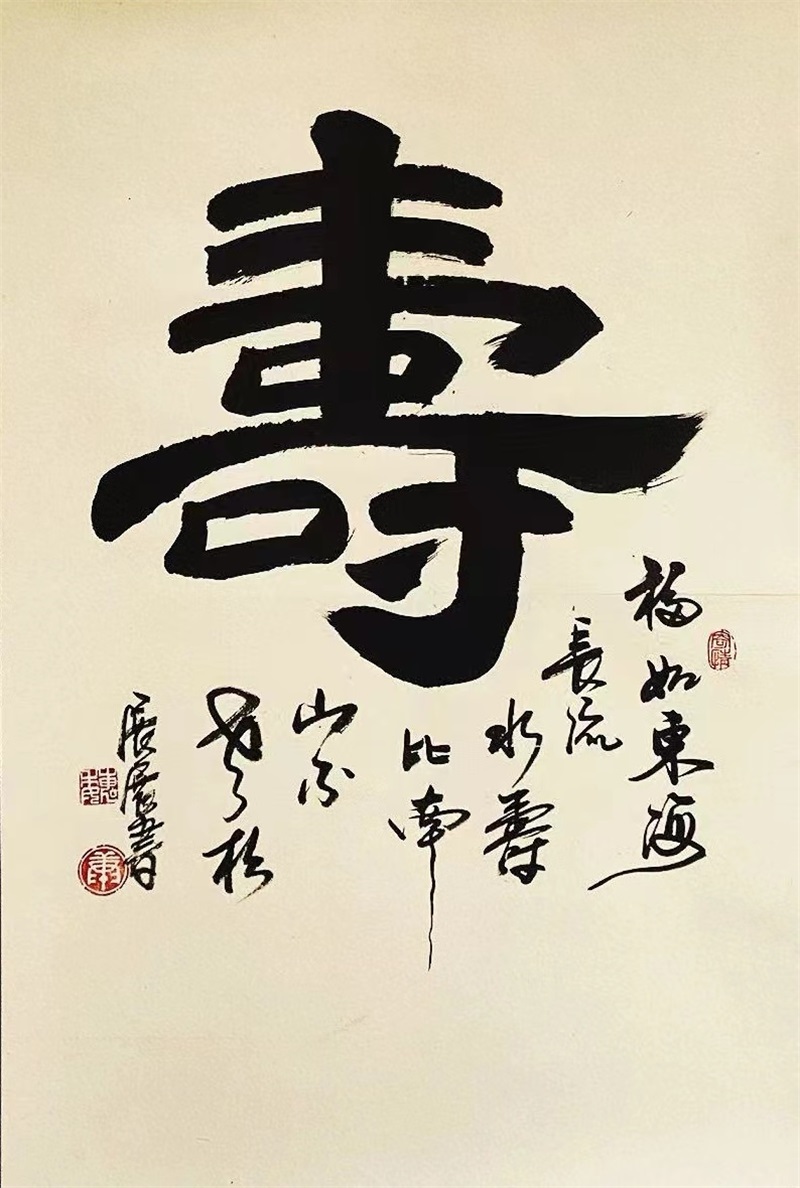 壽
福如東海
長流
水壽
比南
山不
老松